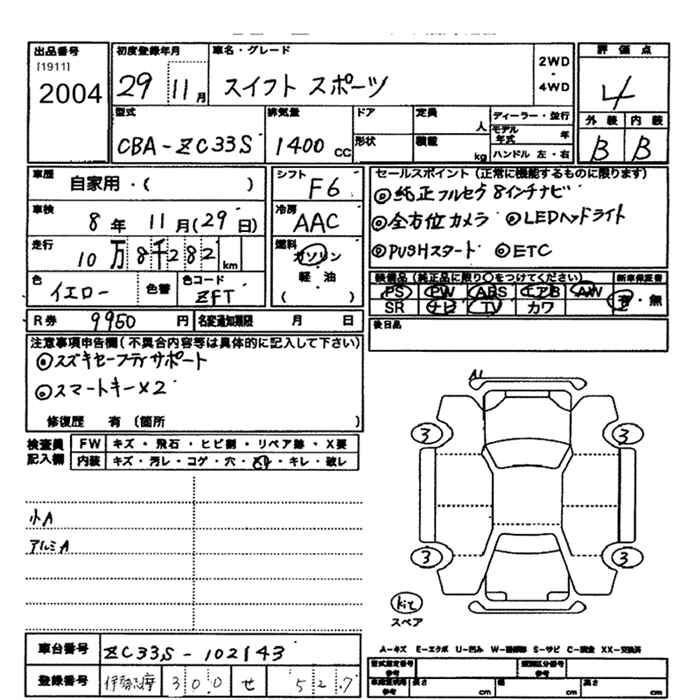 出品番号 初度登録年月 車名・グレード 評価点
[1911]
2004 29 11月 スイフト スポーツ 2WD・4WD 4
型式 排気量 ドア 定員 人 ディーラー・並行 外装 内装
CBA-ZC33S 1400cc 形状 積載 kg モデル年式 年 B B
ハンドル 左・右
車歴 自家用・( ) シフト F6 セールスポイント(正常に機能するものに限ります)
◎純正フルセグ8インチナビ
車検 8年11月(29日) 冷房 AAC ◎全方位カメラ ◎LEDヘッドライト
走行 10万8千282km 燃料 ガソリン 軽・油 ( ) ◎PUSHスタート ◎ETC
色 イエロー 色替 色コード ZFT 装備品(純正品に限り○をつけてください) 新車保証書
PS PW ABS エアB AW 有・無
SR ナビ TV カワ
R券 9950円 名変通知期限 月 日 後日品
注意事項申告欄(不具合内容等は具体的に記入して下さい)
◎スズキセーフティサポート
◎スマートキー×2
修復歴 有(箇所 )
検査員記入欄 FW キズ・飛石・ヒビ割・リペア跡・X要
内装 キズ・汚レ・コゲ・穴・ ・キレ・破レ
A1
3 3
小A
アルミA
3 3
kit
スペア
車台番号 ZC33S-102143 A-キズ E-エクボ U-凹み W-補修跡 S-サビ C-腐食 XX-交換済
型式指定番号 参考 類別区分番号 参考
登録番号 伊勢志摩 300 せ 527 参考 長さ cm 幅 cm 高さ cm